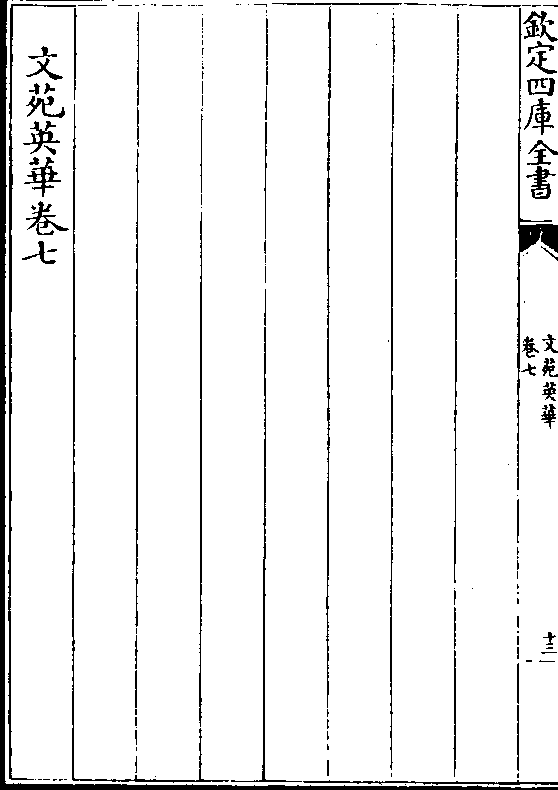 欽定四庫全書
文苑英華
卷七
十三
文苑英華卷七